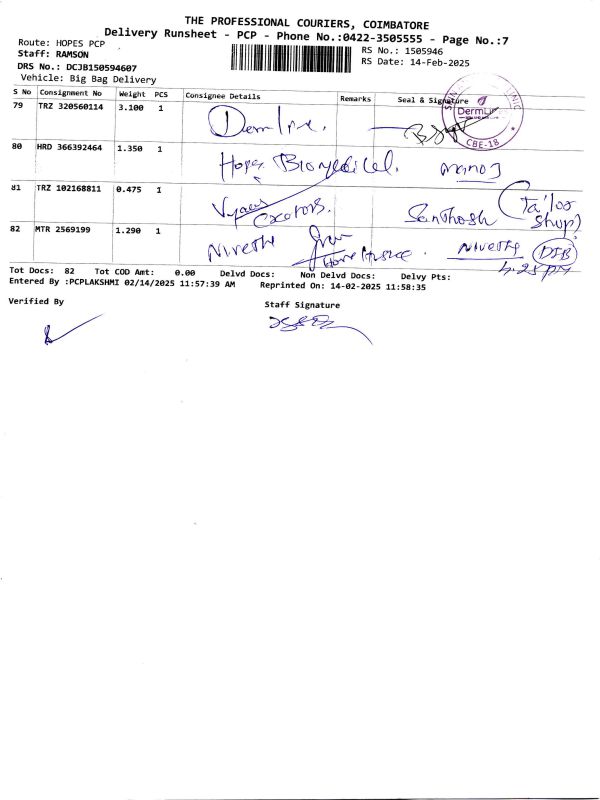 THE PROFESSIONAL COURIERS, COIMBATORE
Delivery Runsheet - PCP - Phone No.:0422-3505555 - Page No.:7
Route: HOPES PCP
RS No.: 1505946
Staff: RAMSON
RS Date: 14-Feb-2025
DRS No.: DCJB150594607
Vehicle: Big Bag Delivery
S No Consignment No Weight PCS Consignee Details Remarks Seal & Signature
79 TRZ 320560114 3.100 1
DermLive
CBE-18
80 HRD 366392464 1.350 1 Hopes Biomedical. manoj
81 TRZ 102168811 0.475 1 Santhosh (Tailor shop)
82 MTR 2569199 1.290 1 Nivetha Nivetha
4.25 pm
Tot Docs: 82 Tot COD Amt: 0.00 Delvd Docs: Non Delvd Docs: Delvy Pts:
Entered By :PCPLAKSHMI 02/14/2025 11:57:39 AM Reprinted On: 14-02-2025 11:58:35
Verified By
Staff Signature